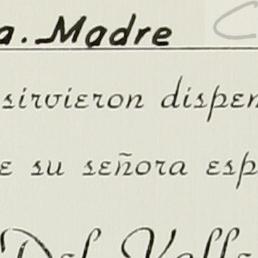 a. Madre
sirvieron dispen
e su señora esp
Del Valle